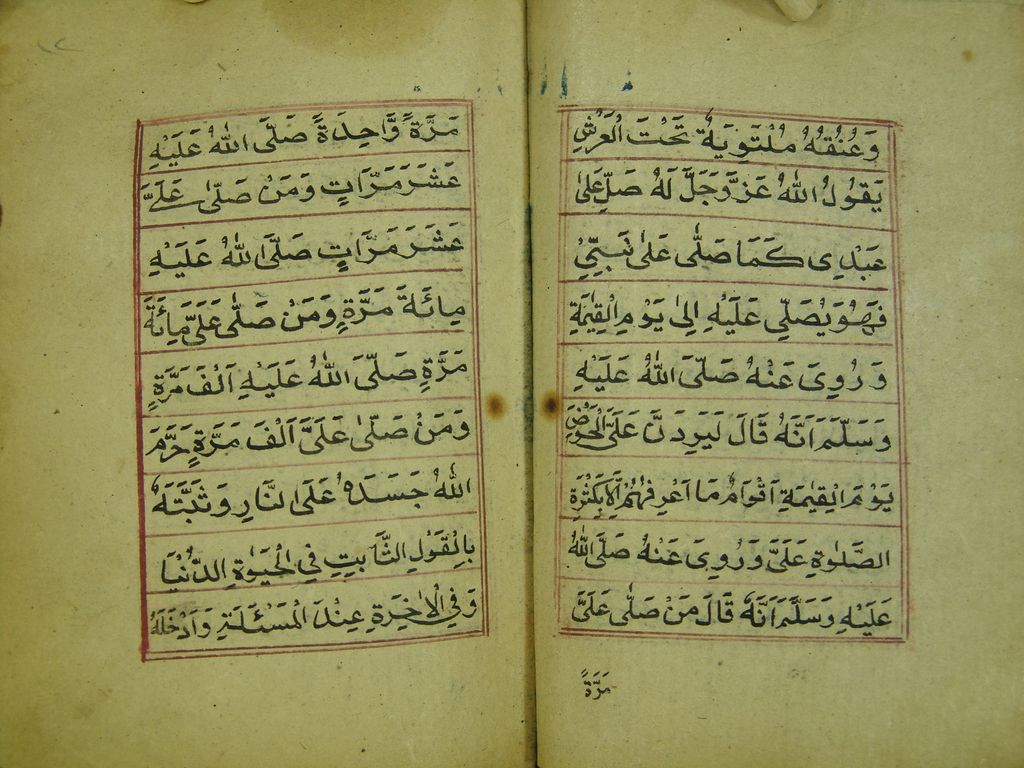 وَعُنُقُهُ مُلْتَوِيَةٌ تَحْتَ الْعَرْشِ
يَقُولُ اللّٰهُ عَزَّ وَجَلَّ لَهُ صَلِّ عَلٰى
عَبْدِى كَمَا صَلّٰى عَلٰى نَبِيِّى
فَهُوَ يُصَلِّى عَلَيْهِ اِلٰى يَوْمِ الْقِيٰمَةِ
وَرُوِىَ عَنْهُ صَلَّى اللّٰهُ عَلَيْهِ
وَسَلَّمَ اَنَّهُ قَالَ لَيَرِدَنَّ عَلَىَّ الْحَوْضَ
يَوْمَ الْقِيٰمَةِ اَقْوَامٌ مَا اَعْرِفُهُمْ اِلَّا بِكَثْرَةِ
الصَّلٰوةِ عَلَىَّ وَرُوِىَ عَنْهُ صَلَّى اللّٰهُ
عَلَيْهِ وَسَلَّمَ اَنَّهُ قَالَ مَنْ صَلّٰى عَلَىَّ
مَرَّةً
١٢
مَرَّةً وَّاحِدَةً صَلَّى اللّٰهُ عَلَيْهِ
عَشْرَ مَرَّاتٍ وَمَنْ صَلّٰى عَلَىَّ
عَشْرَ مَرَّاتٍ صَلَّى اللّٰهُ عَلَيْهِ
مِائَةَ مَرَّةٍ وَمَنْ صَلّٰى عَلَىَّ مِائَةَ
مَرَّةٍ صَلَّى اللّٰهُ عَلَيْهِ اَلْفَ مَرَّةٍ
وَمَنْ صَلّٰى عَلَىَّ اَلْفَ مَرَّةٍ حَرَّمَ
اللّٰهُ جَسَدَهُ عَلَى النَّارِ وَثَبَّتَهُ
بِالْقَوْلِ الثَّابِتِ فِى الْحَيٰوةِ الدُّنْيَا
وَفِى الْاٰخِرَةِ عِنْدَ الْمَسْئَلَةِ وَاَدْخَلَهُ